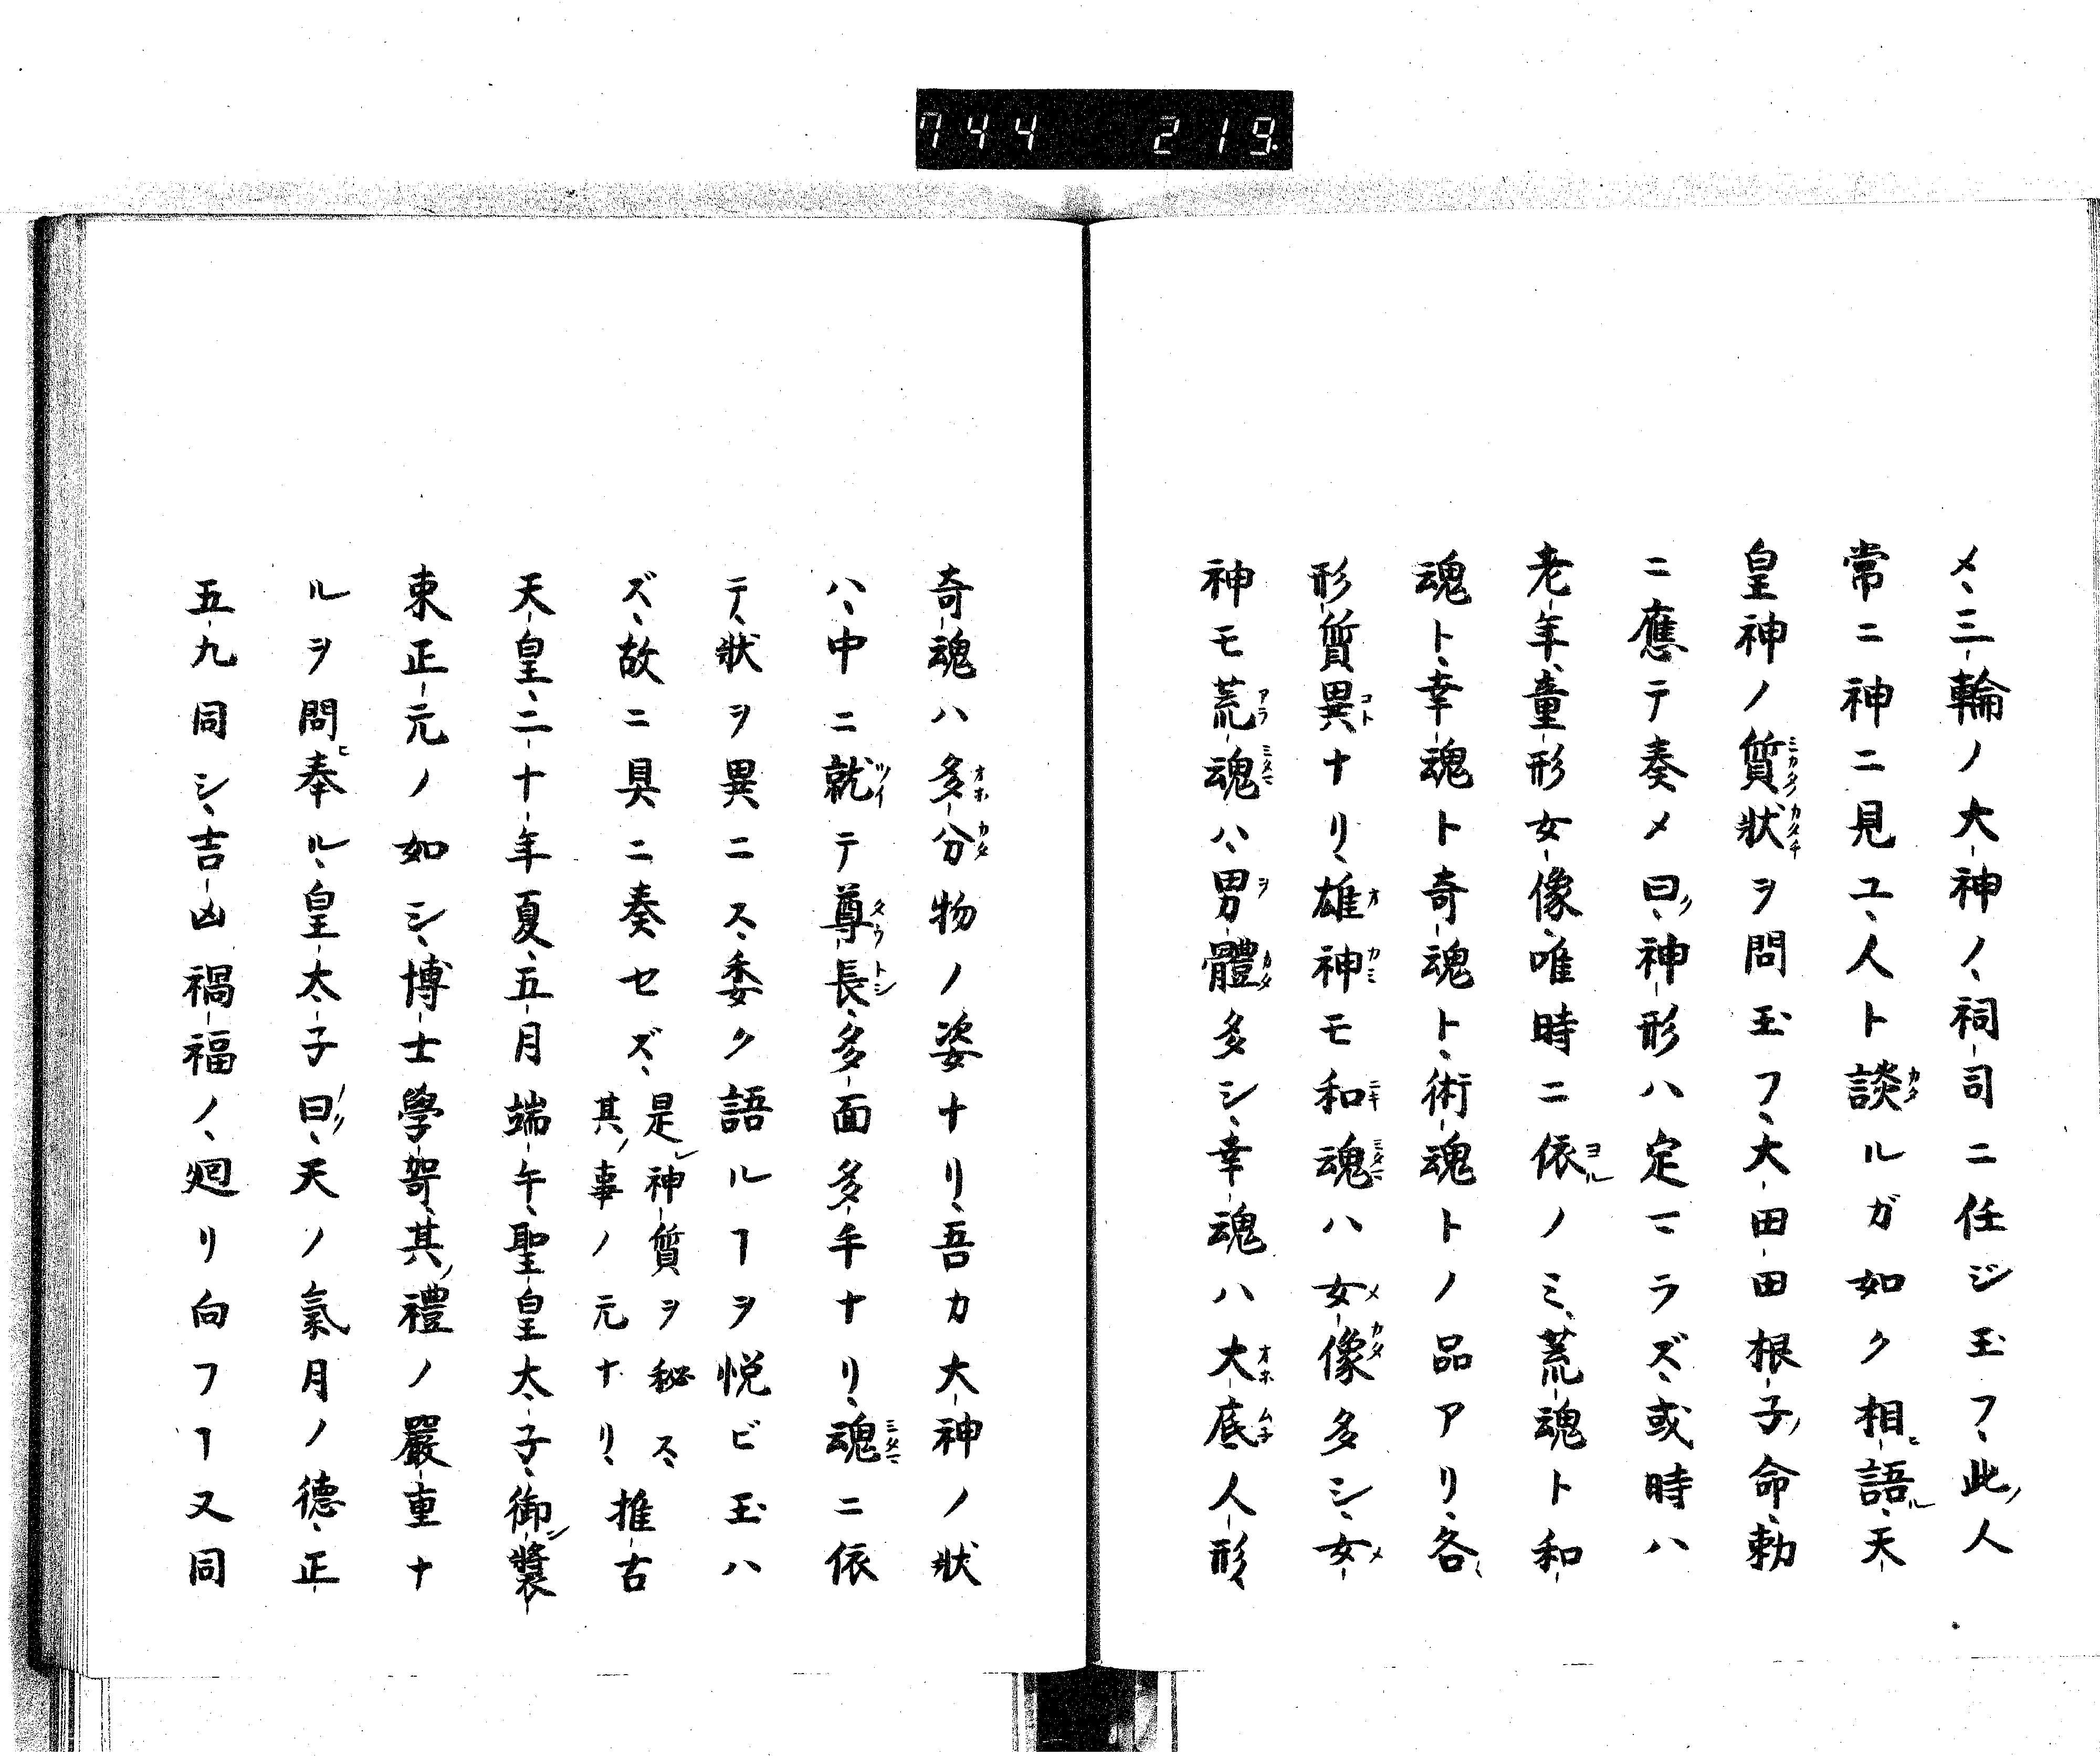 744 219
メ、三輪ノ大神ノ、祠司ニ任ジ玉フ、此ノ人
常ニ神ニ見ユ、人ト談ルガ如ク相ヒ語ル、天
皇神ノ質状ヲ問玉フ、大田田根子ノ命、勅
ニ應テ奏メ曰ノ、神形ハ定マラズ、或時ハ
老年、童形女像、唯時ニ依ルノミ、荒魂ト和
魂ト、幸魂ト奇魂ト、術魂トノ品アリ、各〻
形質異ナリ、雄神モ和魂ハ女像多シ、女
神モ荒魂ハ、男體多シ、幸魂ハ大底人形、
奇魂ハ多分物ノ姿ナリ、吾カ大神ノ状
ハ、中ニ就テ尊長、多面多手ナリ、魂ニ依
テ、狀ヲ異ニス、委ク語ルヿヲ悦ビ玉ハ
ズ、故ニ具ニ奏セズ、是レ神質ヲ秘ス、其ノ事ノ元ナリ、推古
天皇、二十年夏、五月端午、聖皇太子、御シ裝
束正元ノ如シ、博士學哿、其ノ禮ノ嚴重ナ
ルヲ問ヒ奉ル、皇太子曰ノ、天ノ氣月ノ德、正
五九同シ、吉凶禍福ノ、廻リ向フヿ又同